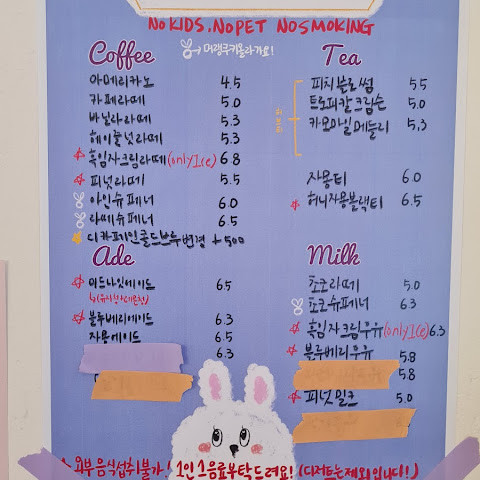 NO KIDS, NO PET NO SMOKING
Coffee
머랭쿠키올라가요!
아메리카노 4.5
카페라떼 5.0
바닐라라떼 5.3
헤이즐넛라떼 5.3
흑임자크림라떼(only Ice) 6.8
피넛라떼 5.5
아인슈페너 6.0
라떼슈페너 6.5
디카페인콜드브루변경 +500
Tea
피치블로썸 5.5
트로피칼크림슨 5.0
카모마일메들리 5.3
자몽티 6.0
허니자몽블랙티 6.5
Ade
미드나잇에이드 6.5
블루베리에이드 6.3
자몽에이드 6.5
6.3
Milk
초코라떼 5.0
초코슈페너 6.3
흑임자크림우유(only Ice) 6.3
블루베리우유 5.8
5.8
피넛밀크 5.0
외부음식섭취불가! 1인 1음료부탁드려요! (디저트는제외입니다!)